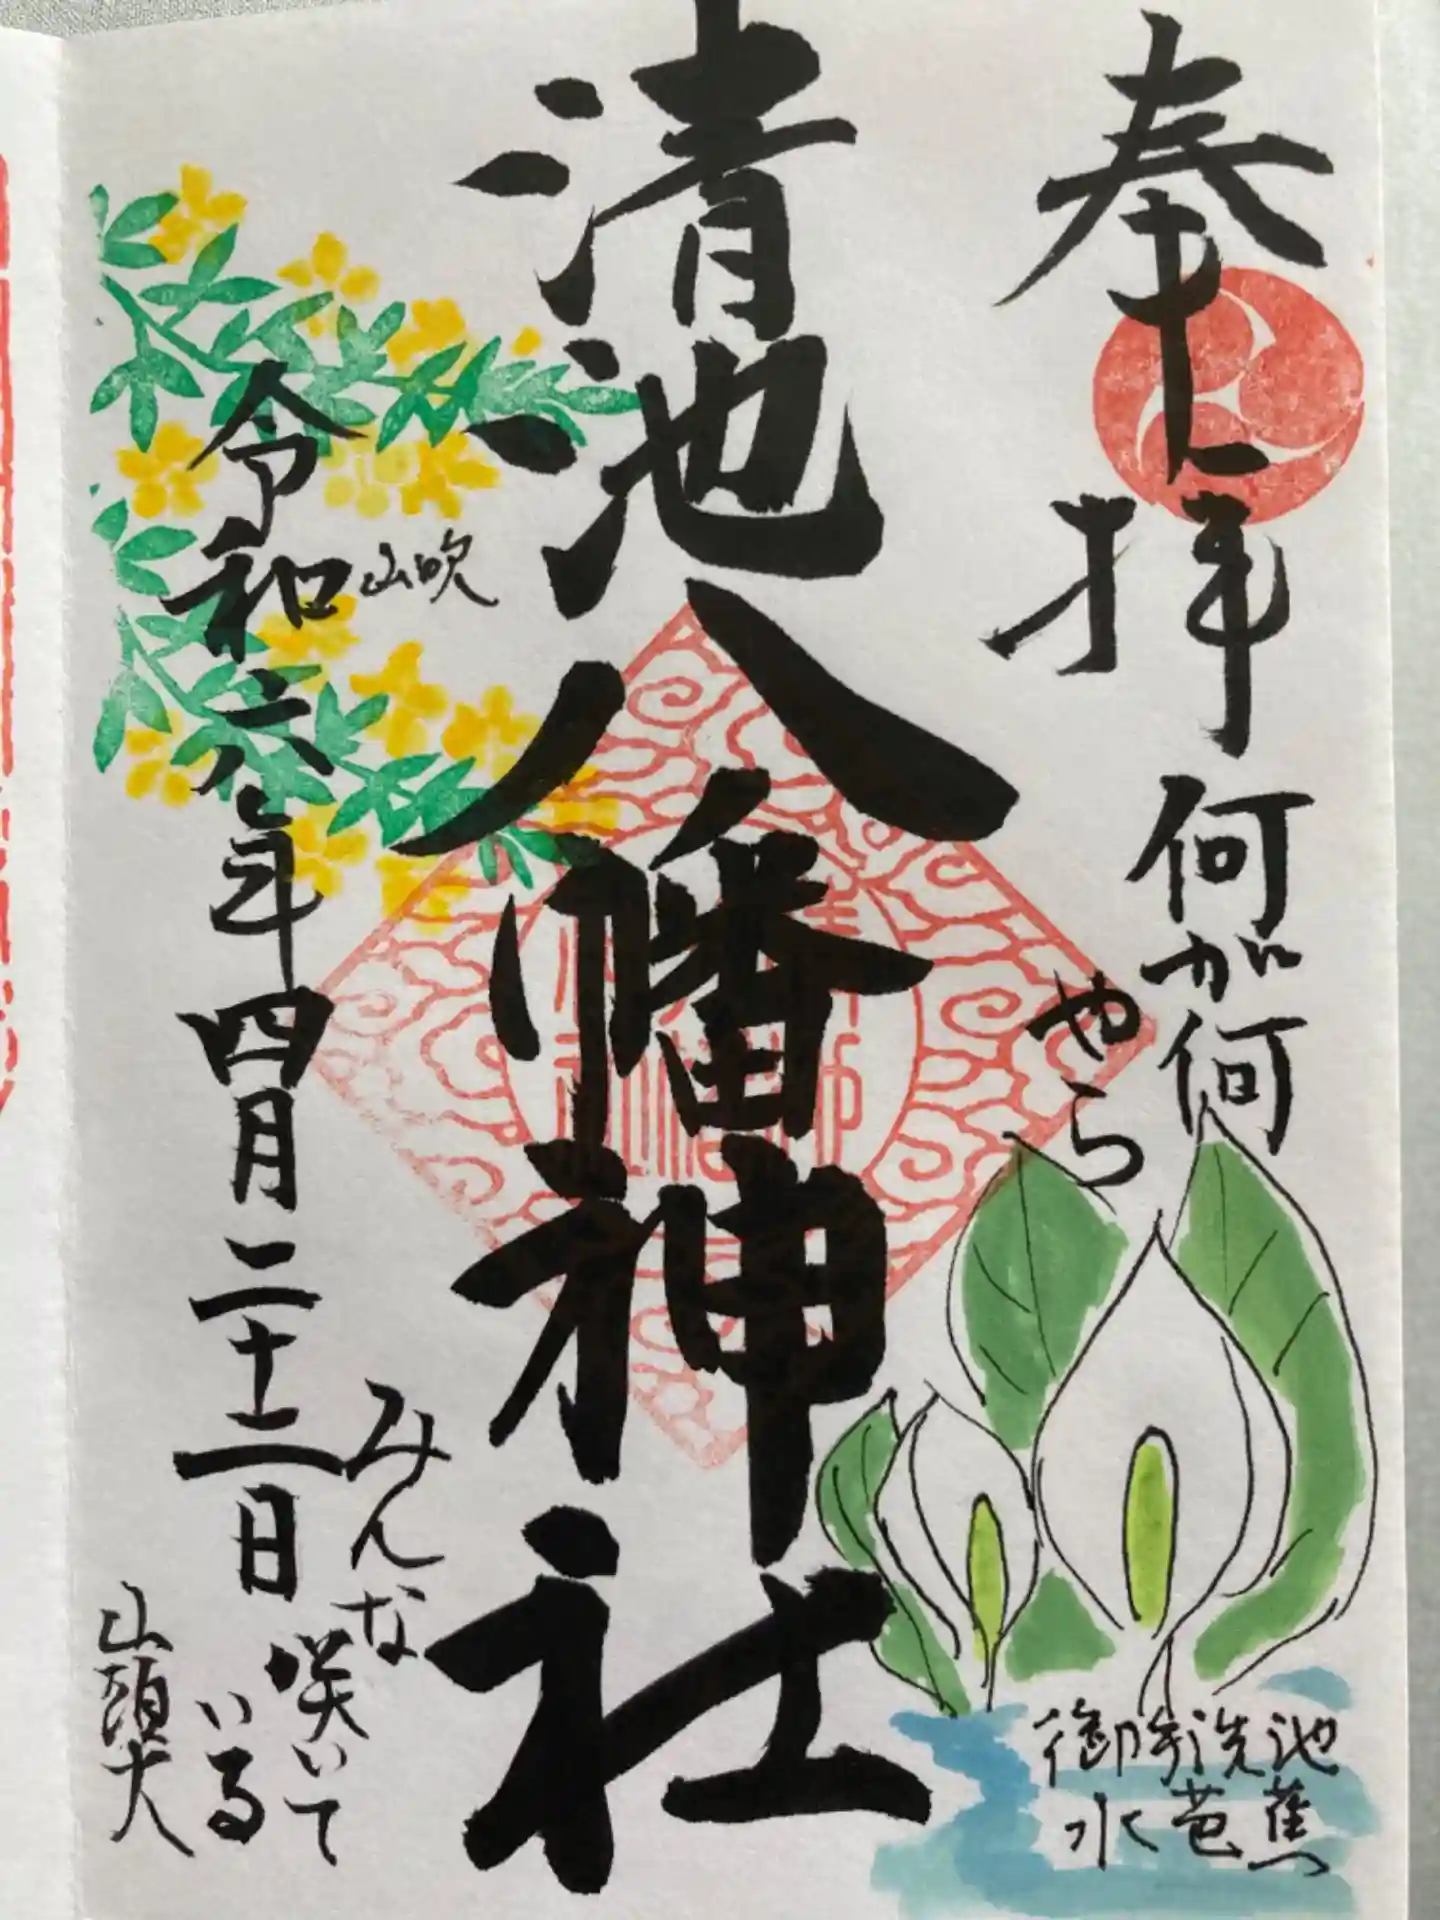 奉拝
何が何
やら
清池八幡神社
山吹
令和六年四月二十二日
みんな
咲いて
いる
山頭火
御手洗池
水芭蕉